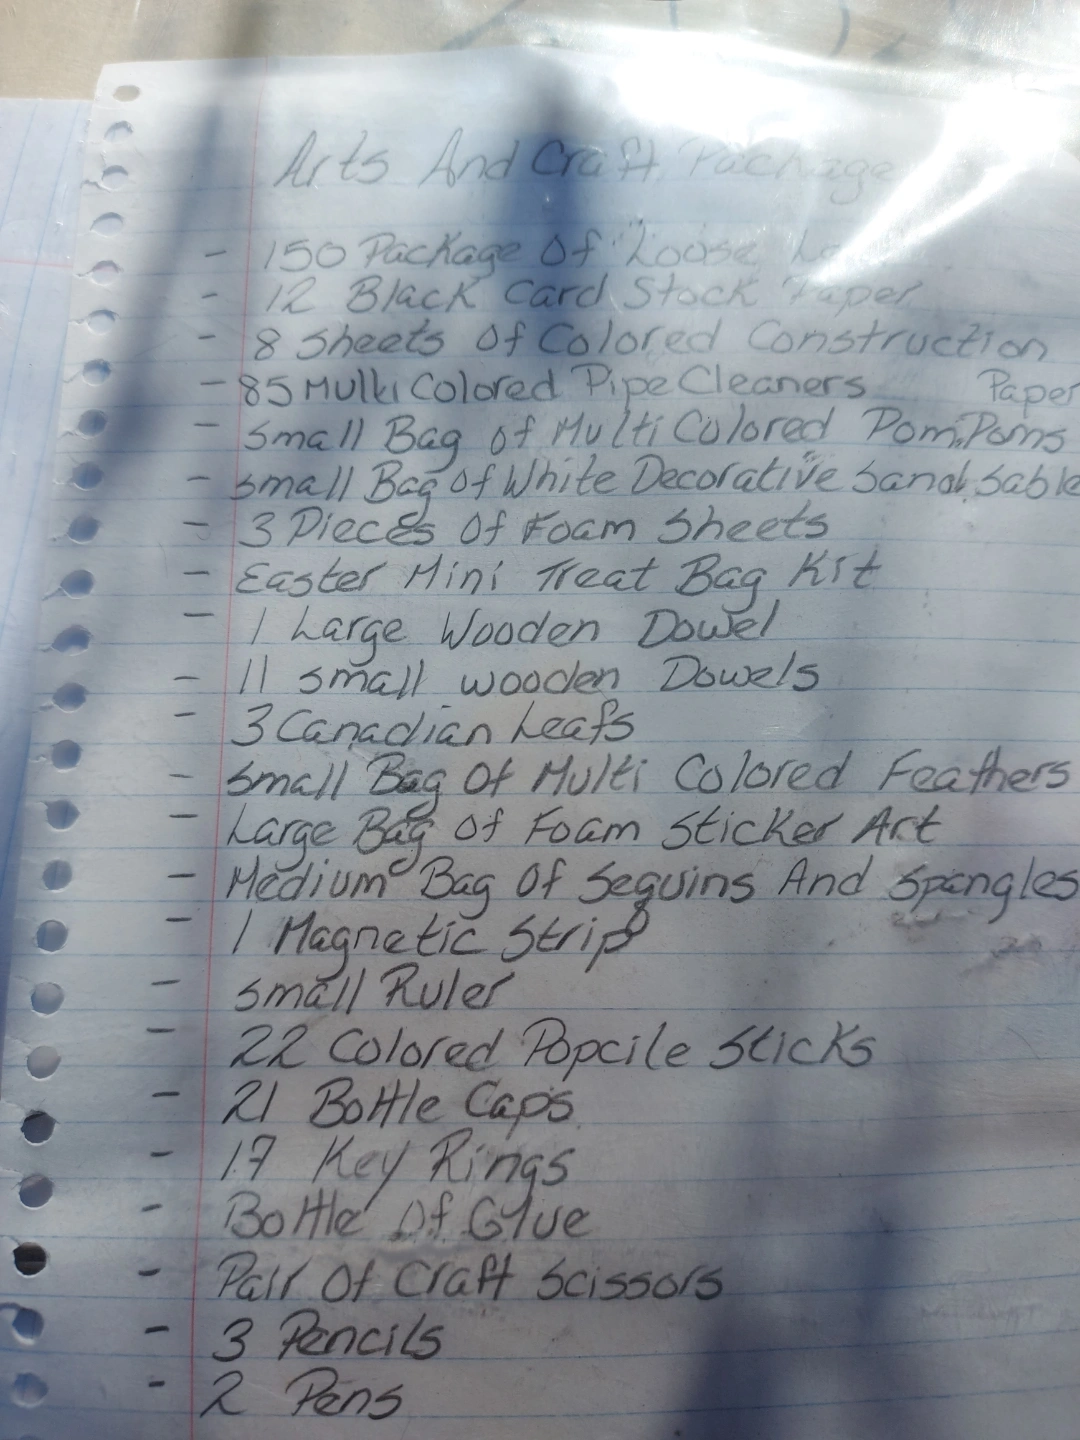 Arts And Craft Package
- 150 Package Of Loose
- 12 Black Card Stock Paper
- 8 Sheets Of Colored Construction
- 85 Multi Colored Pipe Cleaners Paper
- Small Bag of Multi Colored Pom Poms
- Small Bag Of White Decorative Sand, Sable
- 3 Pieces Of Foam Sheets
- Easter Mini Treat Bag Kit
- 1 Large Wooden Dowel
- 11 small wooden Dowels
- 3 Canadian Leafs
- Small Bag Of Multi Colored Feathers
- Large Bag Of Foam Sticker Art
- Medium Bag Of Sequins And Spangles
- 1 Magnetic Strip
- Small Ruler
- 22 Colored Popcile Sticks
- 21 Bottle Caps
- 17 Key Rings
- Bottle Of Glue
- Pair Of Craft Scissors
- 3 Pencils
- 2 Pens